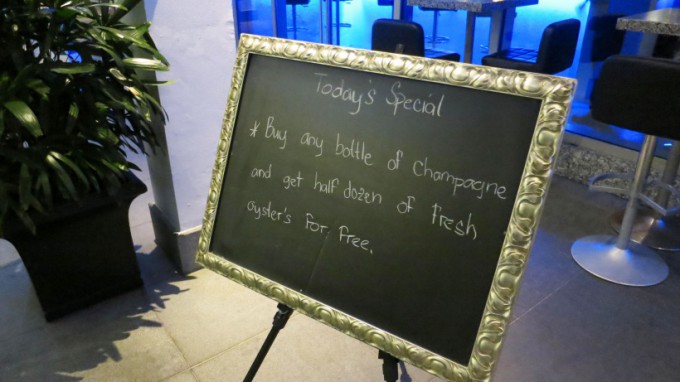 Today's Special
* Buy any bottle of champagne
and get half dozen of fresh
oyster's for free.